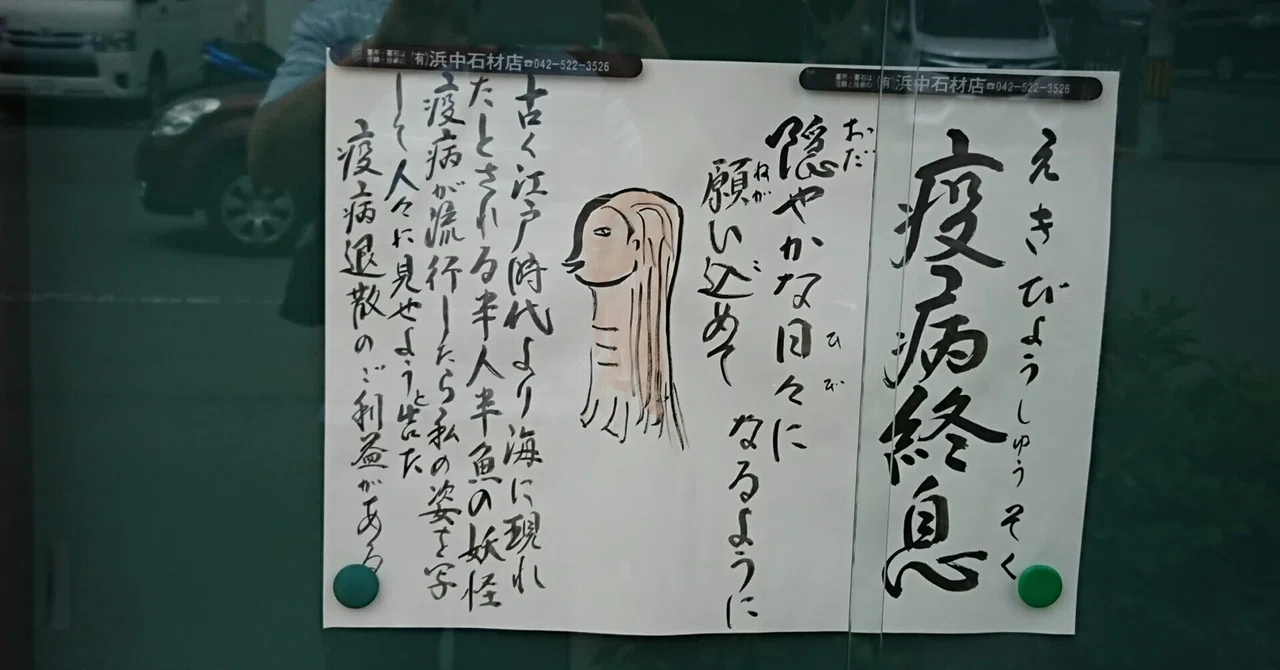 (有)浜中石材店☎042-522-3526
(有)浜中石材店☎042-522-3526
えきびょうしゅうそく
疫病終息
おだ ひび
隠やかな日々に
ねが こ
願い込めて なるように
古く江戸時代より海に現れ
たとされる半人半魚の妖怪
疫病が流行したら私の姿を写
して人々に見せようと告た
疫病退散のご利益がある